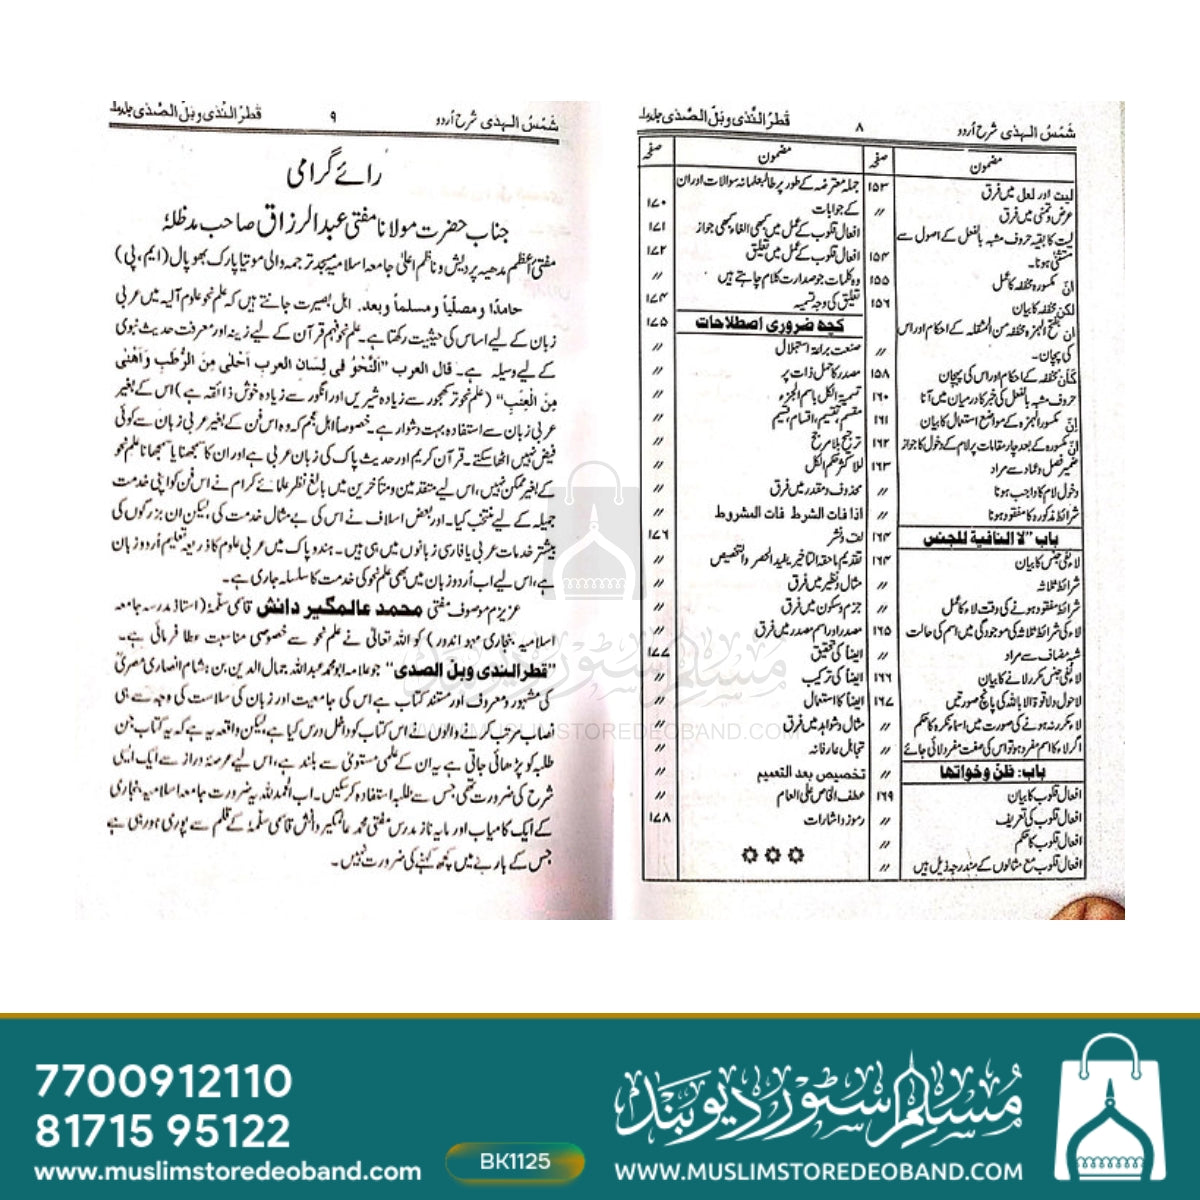 شمسُ الہدٰی شرح اُردو
۸
قطرُ النّدٰی وبلّ الصّدٰی جلد اول
مضمون
صفحہ
مضمون
صفحہ
لیت اور لعل میں فرق
۱۵۳
عرض وتمنی میں فرق
〃
لیت کا بقیہ حروف مشبہ بالفعل کے اصول سے
مستثنیٰ ہونا۔
۱۵۴
انّ مکسورہ مخففہ کا عمل
۱۵۵
لکن مخففہ کا بیان
۱۵۶
ان بفتح الہمزہ مخففہ من المثقلہ کے احکام اور اس
کی پہچان۔
〃
کأن مخففہ کے احکام اور اس کی پہچان
۱۵۸
حروف مشبہ بالفعل کی خبر کا درمیان میں آنا
۱۶۰
اِنّ مکسور الہمزہ کے مواضع استعمال کا بیان
۱۶۱
انّ مکسورہ کے بعد چار مقامات پر لام کے دخول کا جواز
۱۶۲
ضمیر فصل وعماد سے مراد
۱۶۳
دخول لام کا واجب ہونا
〃
شرائط مذکورہ کا مفقود ہونا
〃
باب "لا النافية للجنس
۱۶۴
لاء نفی جنس کا بیان
۱۶۴
شرائط ثلاثہ
〃
شرائط مفقود ہونے کی وقت لاء کا عمل
〃
لاء کی شرائط ثلاثہ کی موجودگی میں اسم کی حالت
۱۶۵
شبہ مضاف سے مراد
〃
لا نفی جنس مکرر لانے کا بیان
۱۶۶
لاحول ولا قوۃ الا باللہ کی پانچ صورتیں
۱۶۷
لاء مکرر نہ ہونے کی صورت میں اسماء نکرہ کا حکم
〃
اگر لاء کا اسم مفرد ہو تو اس کی صفت مفرد لائی جائے
〃
باب: ظنّ وخواتها
〃
افعال قلوب کا بیان
۱۶۹
افعال قلوب کی تعریف
〃
افعال قلوب کا حکم
〃
افعال قلوب مع مثالوں کے مندرجہ ذیل ہیں
〃
جملہ معترضہ کے طور پر طالبعلمانہ سوالات اور ان
کے جوابات
۱۷۰
افعال قلوب کے عمل میں کبھی الغاء کبھی جواز
۱۷۱
افعال قلوب کے عمل میں تعلیق
۱۷۲
وہ کلمات جو صدارت کلام چاہتے ہیں
〃
تعلیق کی وجہ تسمیہ
۱۷۴
کچھ ضروری اصطلاحات
۱۷۵
صنعت براعۃ استہلال
〃
مصدر کا حمل ذات پر
〃
تسمیۃ الکل باسم الجزء
〃
مقسم، تقسیم، اقسام، قسیم
〃
ترجیح بلا مرجح
〃
للاکثر حکم الکل
〃
محذوف ومقدر میں فرق
〃
اذا فات الشرط فات المشروط
〃
لف ونشر
۱۷۶
تقدیم ماحقہ التاخیر یفید الحصر والتخصیص
〃
مثال ونظیر میں فرق
〃
جزم وسکون میں فرق
〃
مصدر اور اسم مصدر میں فرق
〃
ایضاً کی تحقیق
۱۷۷
ایضاً کی ترکیب
〃
ایضاً کا استعمال
〃
مثال وشواہد میں فرق
〃
تجاہل عارفانہ
〃
تخصیص بعد التعمیم
〃
عطف الخاص علی العام
〃
رموز واشارات
۱۷۸
شمسُ الہدٰی شرح اُردو
۹
قطرُ النّدٰی وبلّ الصّدٰی جلد اول
رائے گرامی
جناب حضرت مولانا مفتی عبدالرزاق صاحب مدظلہٗ
مفتیٔ اعظم مدھیہ پردیش وناظم اعلیٰ جامعہ اسلامیہ مسجد ترجمہ والی موتیا پارک بھوپال (ایم،پی)
حامدًا ومصلّیاً ومسلماً وبعد. اہل بصیرت جانتے ہیں کہ علم نحو علوم آلیہ میں عربی
زبان کے لیے اساس کی حیثیت رکھتا ہے۔ علم نحو فہم قرآن کے لیے زینہ اور معرفت حدیث نبوی
کے لیے وسیلہ ہے۔ قال العرب "اَلنَّحْوُ فی لِسَان العربِ اَحْلٰی مِنَ الرُّطَبِ وَاَهْنٰی
مِنَ الْعِنَبِ" (علم نحو تر کھجور سے زیادہ شیریں اور انگور سے زیادہ خوش ذائقہ ہے) اس کے بغیر
عربی زبان سے استفادہ بہت دشوار ہے۔ خصوصاً اہل عجم کہ وہ اس فن کے بغیر عربی زبان سے کوئی
فیض نہیں اٹھا سکتے۔ قرآن کریم اور حدیث پاک کی زبان عربی ہے اور ان کا سمجھنا یا سمجھانا علم نحو
کے بغیر ممکن نہیں، اس لیے متقدمین ومتاخرین میں بالغ نظر علمائے کرام نے اس فن کو اپنی خدمت
جمیلہ کے لیے منتخب کیا۔ اور بعض اسلاف نے اس کی بے مثال خدمت کی، لیکن ان بزرگوں کی
بیشتر خدمات عربی یا فارسی زبانوں میں ہی ہیں۔ ہند وپاک میں عربی علوم کا ذریعہ تعلیم اُردو زبان
ہے، اس لیے اب اُردو زبان میں بھی علم نحو کی خدمت کا سلسلہ جاری ہے۔
عزیزم موصوف مفتی محمد عالمگیر دانش قاسمی سلّمہٗ (استاذ مدرسہ جامعہ
اسلامیہ بنجاری مہو اندور) کو اللہ تعالیٰ نے علم نحو سے خصوصی مناسبت عطا فرمائی ہے۔
"قطر الندی وبلّ الصدی" جو علامہ ابو محمد عبداللہ جمال الدین بن ہشام انصاری مصریؒ
کی مشہور ومعروف اور مستند کتاب ہے اس کی جامعیت اور زبان کی سلاست کی وجہ سے ہی
نصاب مرتب کرنے والوں نے اس کتاب کو داخل درس کیا ہے، لیکن واقعہ یہ ہے کہ یہ کتاب جن
طلبہ کو پڑھائی جاتی ہے یہ ان کے علمی مستویٰ سے بلند ہے، اس لیے عرصۂ دراز سے ایک ایسی
شرح کی ضرورت تھی، جس سے طلبہ استفادہ کر سکیں۔ اب الحمدللہ یہ ضرورت جامعہ اسلامیہ بنجاری
کے ایک کامیاب اور مایہ ناز مدرس مفتی محمد عالمگیر دانش قاسمی سلّمہٗ کے قلم سے پوری ہو رہی ہے
جس کے بارے میں کچھ کہنے کی ضرورت نہیں۔
مسلم سٹور دیوبند
WWW.MUSLIMSTOREDEOBAND.COM
7700912110
81715 95122
www.muslimstoredeoband.com
BK1125
مُسلم سٹور دیوبند
WWW.MUSLIMSTOREDEOBAND.COM